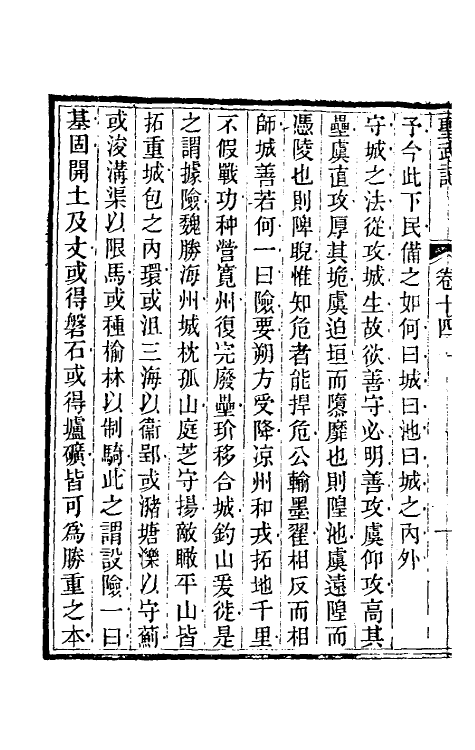 聖武記 卷十四
予今此下民備之如何曰城曰池曰城之內外
守城之法從攻城生故欲善守必明善攻虞仰攻高其
壘虞直攻厚其垝虞迫垣而隳靡也則隍池虞遠隍而
憑陵也則陴睨惟知危者能捍危公輸墨翟相反而相
師城善若何一曰險要朔方受降凉州和戎拓地千里
不假戰功种營寬州復完廢壘玠移合城釣山爰徙是
之謂據險魏勝海州城枕孤山庭芝守揚敵瞰平山皆
拓重城包之內環或沮三海以衞郢或瀦塘濼以守薊
或浚溝渠以限馬或種榆林以制騎此之謂設險一曰
基固開土及丈或得磐石或得壚礦皆可爲勝重之本